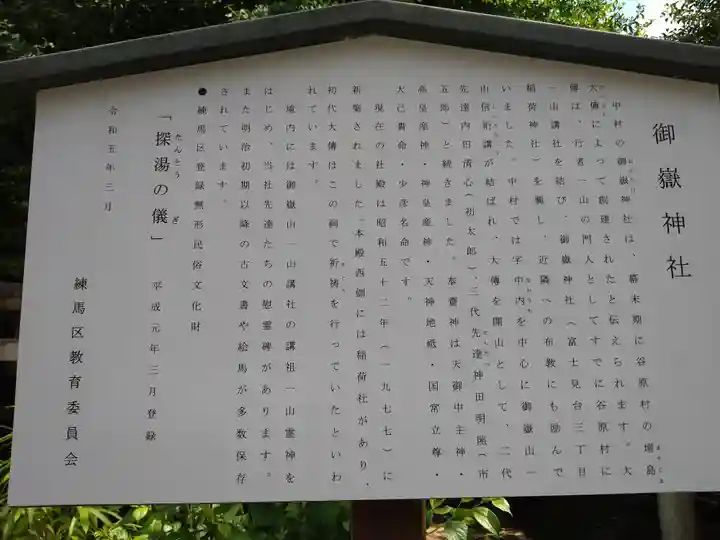 御嶽神社
中村の御嶽神社は、幕末期に谷原村の増島
大傳によって創建されたと伝えられます。大
傳は、行者一山の門人としてすでに谷原村に
一山講社を結び、御嶽神社（富士見台三丁目
稲荷神社）を興し、近隣への布教にも励んで
いました。中村では字中内を中心に御嶽山一
山信行講が結ばれ、大傳を開山として、二代
先達内田清心（初太郎）、三代先達神田明眺（市
五郎）と続きました。奉斎神は天御中主神・
高皇産神・神皇産神・天神地祇・国常立尊・
大己貴命・少彦名命です。
現在の社殿は昭和五十二年（一九七七）に
新築されました。本殿西側には稲荷社があり、
初代大傳はこの祠で祈祷を行っていたといわ
れています。
境内には御嶽山一山講社の講祖一山霊神を
はじめ、当社先達たちの慰霊碑があります。
また明治初期以降の古文書や絵馬が多数保存
されています。
●練馬区登録無形民俗文化財
「探湯の儀」 平成元年三月登録
たんとう ぎ
令和五年三月
練馬区教育委員会